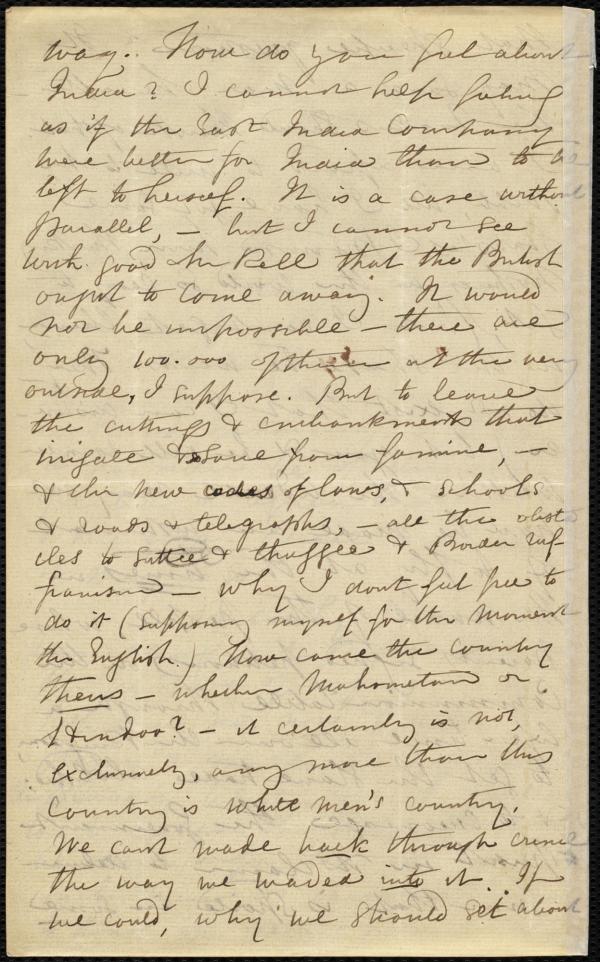 way. How do you feel about
India? I cannot help feeling
as if the East India Company
were better for India than to be
left to herself. It is a case without
parallel, — but I cannot see
with good Mr Pell that the British
ought to come away. It would
not be impossible — there are
only 100.000 of them at the very
outside, I suppose. But to leave
the cuttings & embankments that
irrigate & save from famine, —
& the new codes of laws, & schools
& roads & telegraphs, — all the obsta
cles to Suttee & thuggee & Border ruf-
fianism — why I dont feel free to
do it (supposing myself for the moment
the English.) How came the country
theirs — whether Mahometan or
Hindoo? — it certainly is not,
exclusively, any more than this
country is white men's country.
We cant wade back through crime
the way we waded into it. If
we could, why we should set about